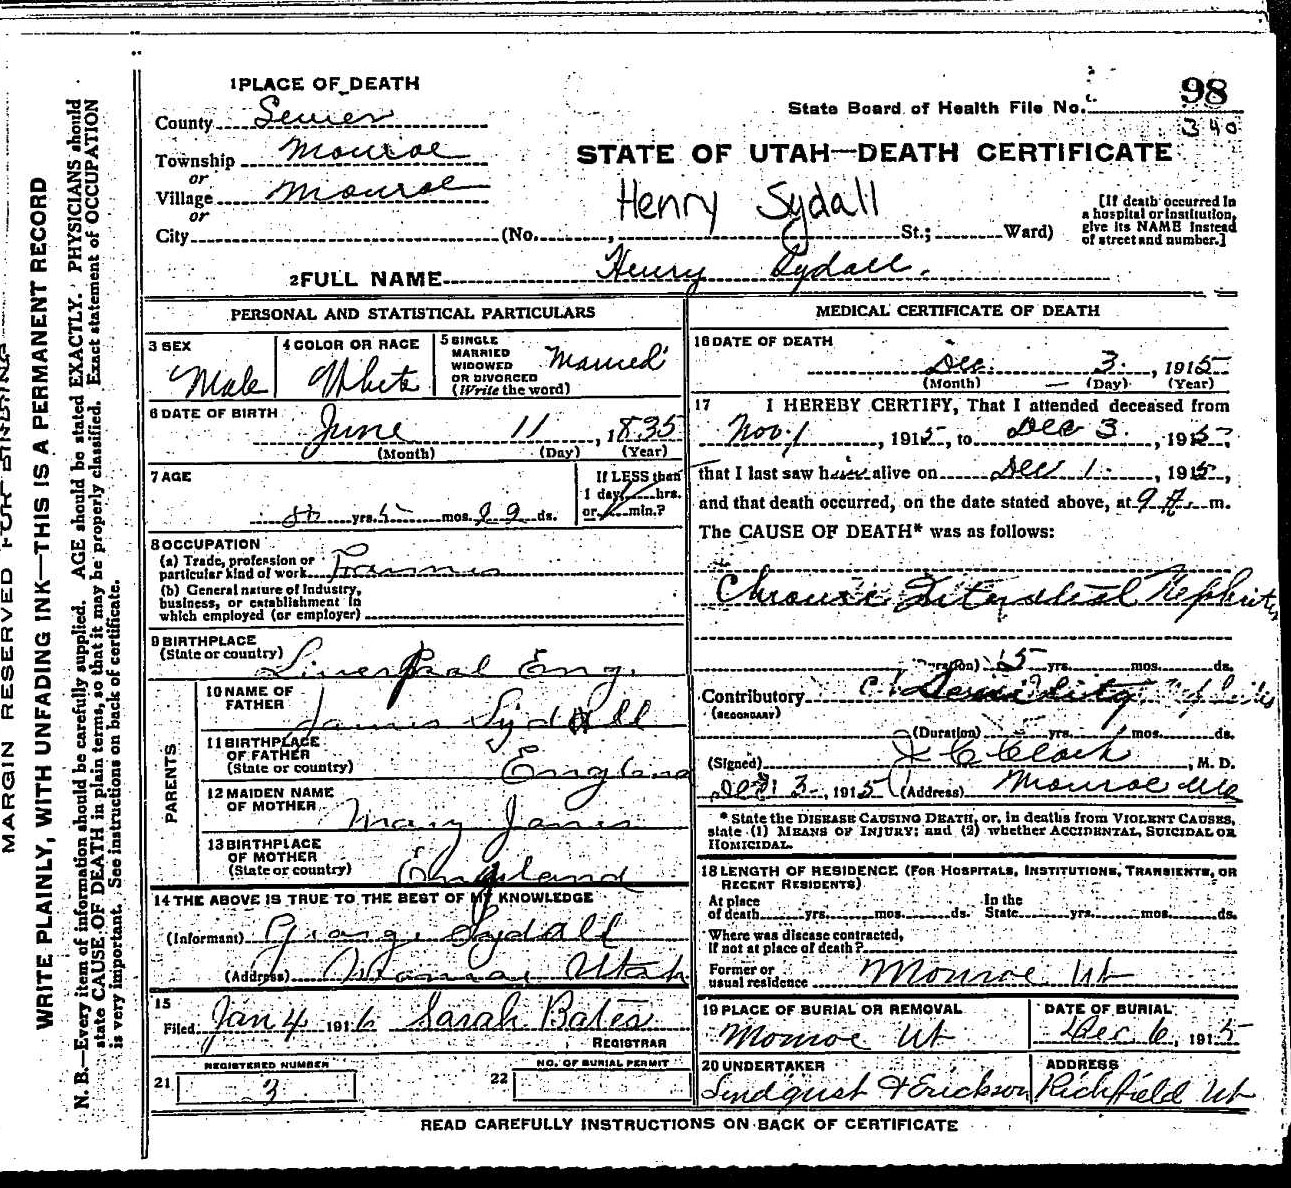 98
State Board of Health File No.
340
1 PLACE OF DEATH
County Sevier
Township Monroe
or
Village Monroe
or
City (No. , St.; Ward)
STATE OF UTAH—DEATH CERTIFICATE
Henry Sydall
[If death occurred in
a hospital or institution,
give its NAME instead
of street and number.]
2 FULL NAME Henry Sydall.
PERSONAL AND STATISTICAL PARTICULARS
3 SEX
Male
4 COLOR OR RACE
White
5 SINGLE
MARRIED
WIDOWED
OR DIVORCED
(Write the word)
Married
6 DATE OF BIRTH
June 11, 1835
(Month) (Day) (Year)
7 AGE
80 yrs. 5 mos. 29 ds.
If LESS than
1 day, hrs.
or min.?
8 OCCUPATION
(a) Trade, profession or
particular kind of work Farmer
(b) General nature of Industry,
business, or establishment in
which employed (or employer)
9 BIRTHPLACE
(State or country) Liverpool Eng.
PARENTS
10 NAME OF
FATHER
James Sydall
11 BIRTHPLACE
OF FATHER
(State or country) England
12 MAIDEN NAME
OF MOTHER Mary James
13 BIRTHPLACE
OF MOTHER
(State or country) England
14 THE ABOVE IS TRUE TO THE BEST OF MY KNOWLEDGE
(Informant) George Sydall
(Address) Monroe Utah
15
Filed Jan 4 1916 Sarah Bates
REGISTRAR
21 REGISTERED NUMBER
3
22 NO. OF BURIAL PERMIT
MEDICAL CERTIFICATE OF DEATH
16 DATE OF DEATH
Dec. 3., 1915
(Month) (Day) (Year)
17 I HEREBY CERTIFY, That I attended deceased from
Nov. 1, 1915, to Dec 3., 1915,
that I last saw him alive on Dec 1., 1915,
and that death occurred, on the date stated above, at 9 A. m.
The CAUSE OF DEATH* was as follows:
Chronic Interstitial Nephritis
(Duration) 5 yrs. mos. ds.
Contributory
(SECONDARY)
(Duration) yrs. mos. ds.
(Signed) J C Clark, M. D.
Dec 3, 1915 (Address) Monroe
* State the DISEASE CAUSING DEATH, or, in deaths from VIOLENT CAUSES,
state (1) MEANS OF INJURY; and (2) whether ACCIDENTAL, SUICIDAL OR
HOMICIDAL.
18 LENGTH OF RESIDENCE (FOR HOSPITALS, INSTITUTIONS, TRANSIENTS, OR
RECENT RESIDENTS)
At place
of death yrs. mos. ds. In the
State yrs. mos. ds.
Where was disease contracted,
If not at place of death?
Former or
usual residence Monroe Ut
19 PLACE OF BURIAL OR REMOVAL
Monroe Ut
DATE OF BURIAL
Dec 6, 1915
20 UNDERTAKER
Lindquist & Erickson
ADDRESS
Richfield Ut
READ CAREFULLY INSTRUCTIONS ON BACK OF CERTIFICATE
MARGIN RESERVED FOR BINDING
WRITE PLAINLY, WITH UNFADING INK—THIS IS A PERMANENT RECORD
N. B.—Every item of information should be carefully supplied. AGE should be stated EXACTLY. PHYSICIANS should
state CAUSE OF DEATH in plain terms, so that it may be properly classified. Exact statement of OCCUPATION
is very important. See instructions on back of certificate.